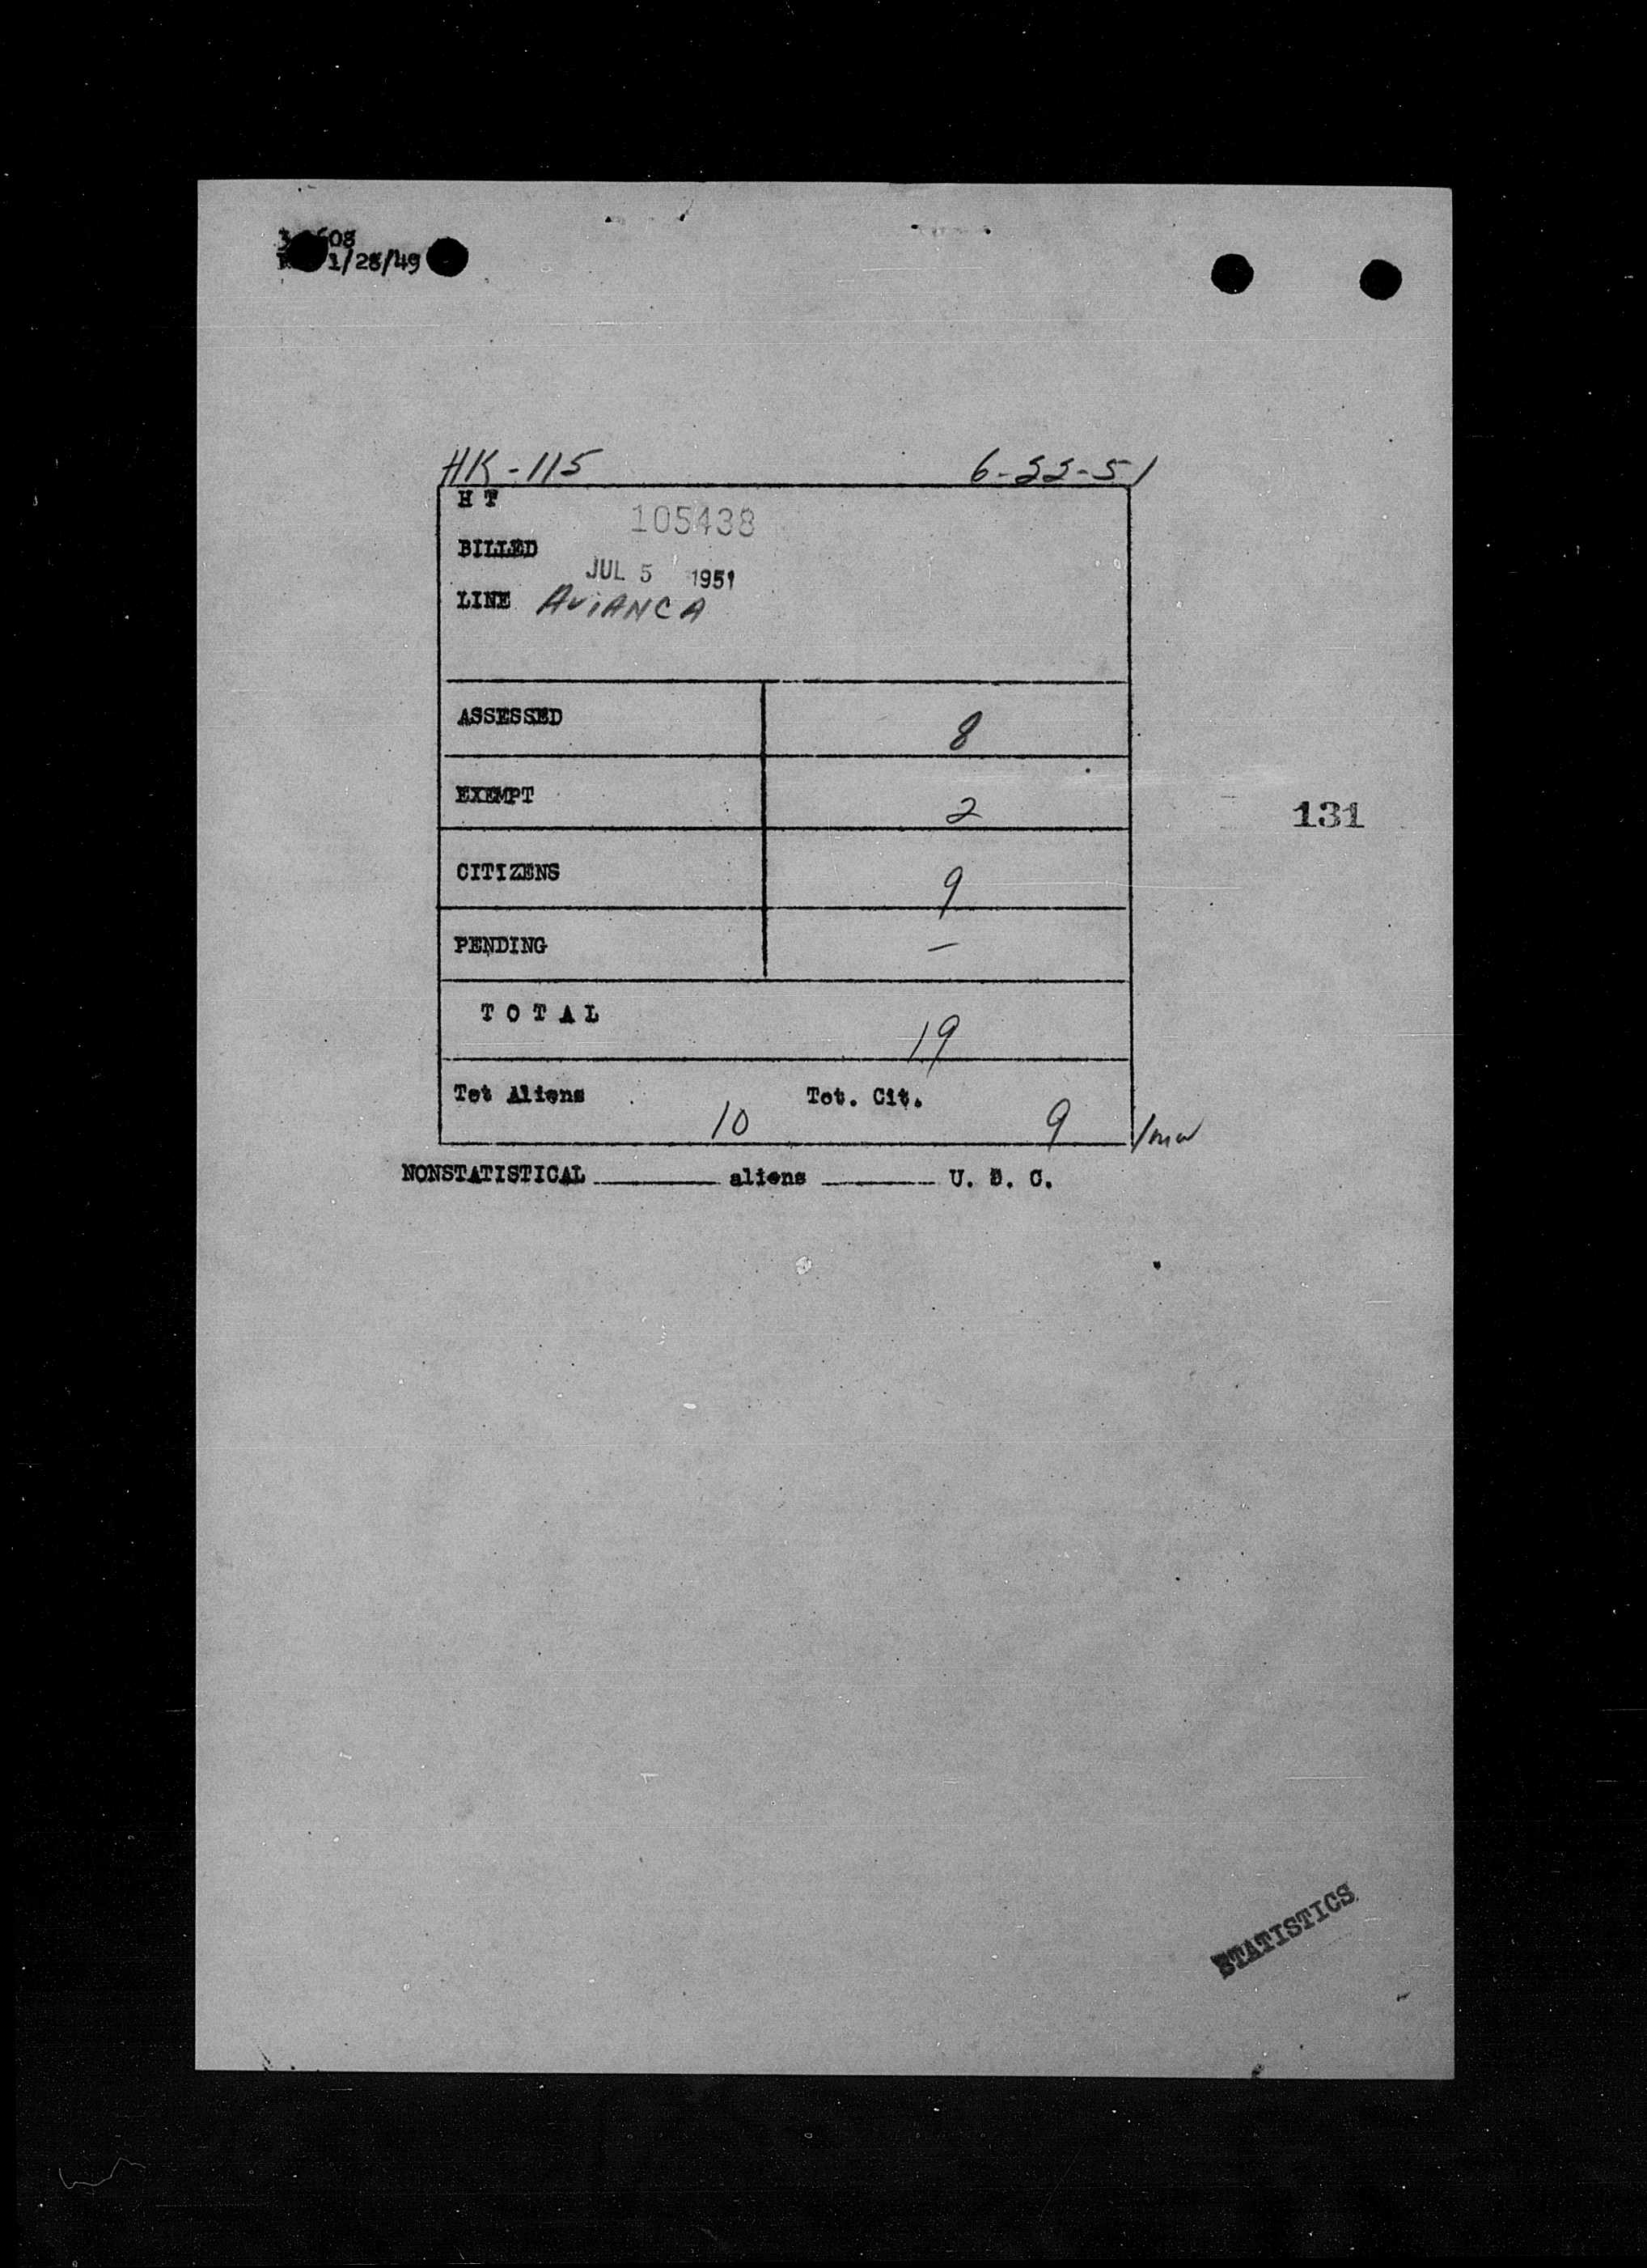 08
1/28/49
HK-115 6-22-51
H T
105438
BILLED
JUL 5 1951
LINE AVIANCA
ASSESSED 8
EXEMPT 2
131
CITIZENS 9
PENDING –
T O T A L 19
Tot Aliens 10 Tot. Cit. 9
NONSTATISTICAL ______ aliens ______ U. S. C.
STATISTICS